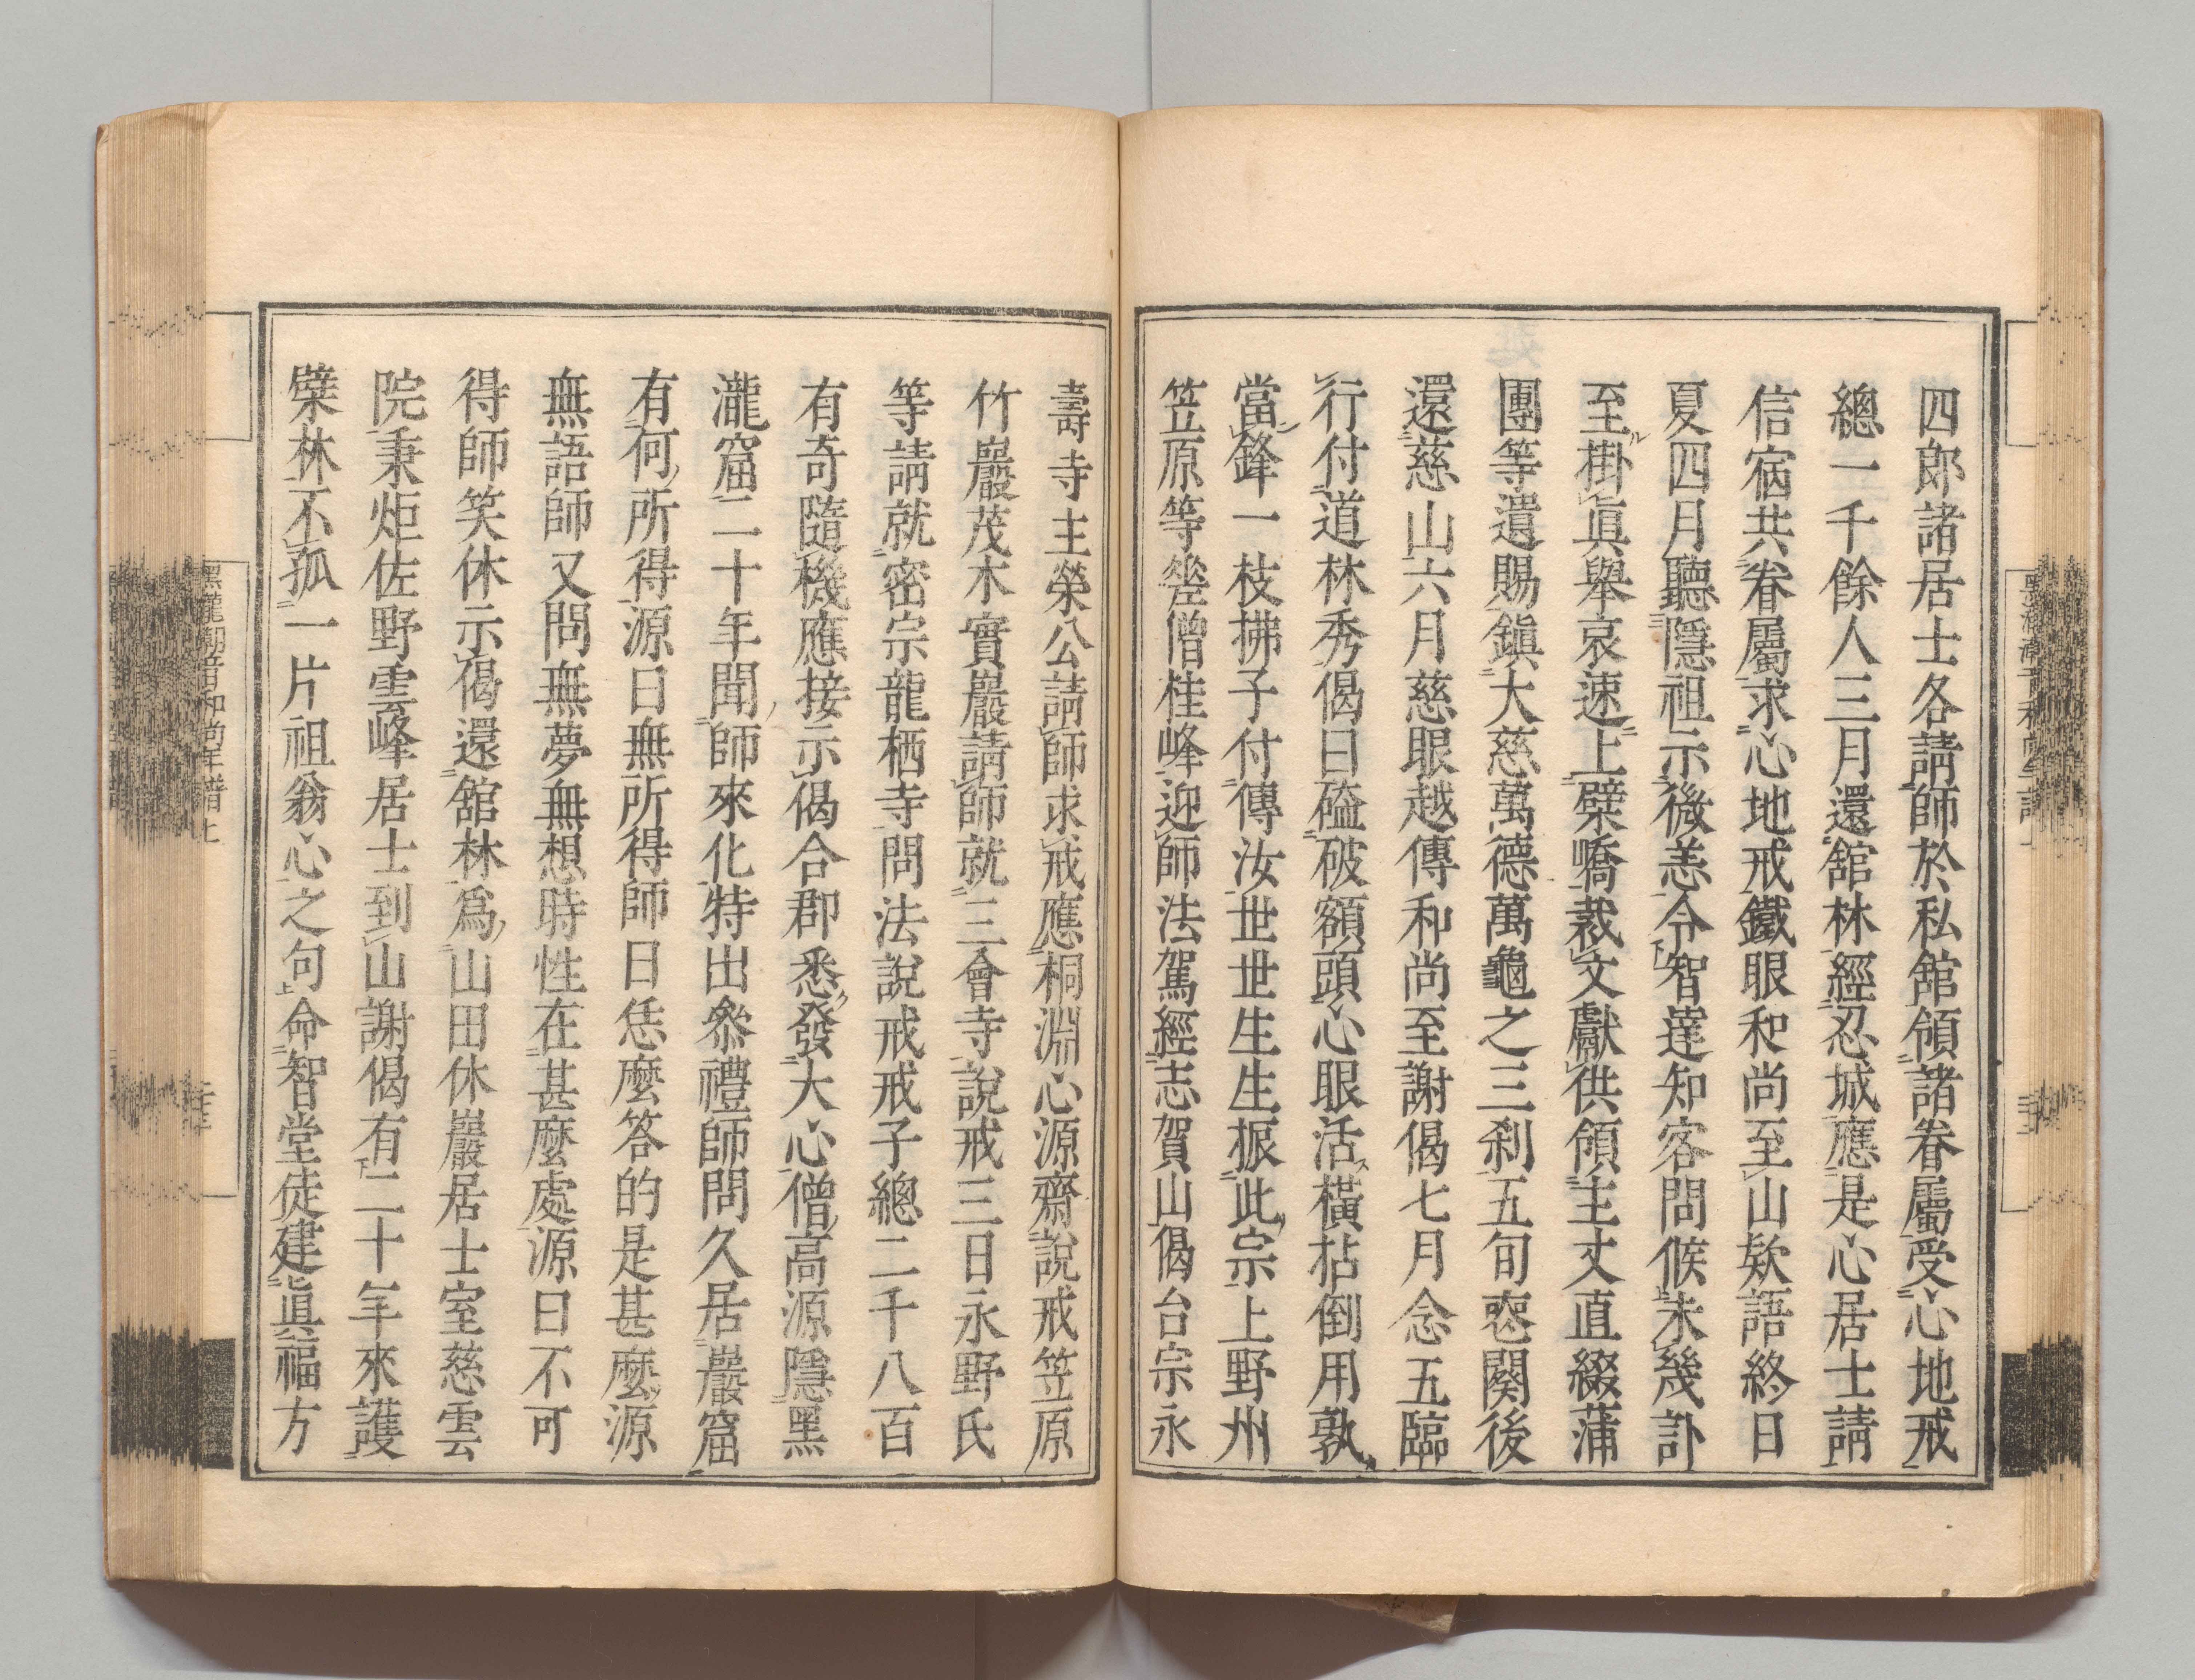 四郎諸居士各請師於私舘領諸眷屬受心地戒
總一千餘人三月還舘林經忍城應是心居士請
信宿共眷屬求心地戒鐵眼和尚至山欵語終日
夏四月聽隱祖示微恙令智達知客問候未幾訃
至掛眞舉哀速上檗嶠裁文獻供領主丈直綴蒲
團等遺賜鎭大慈萬德萬龜之三刹五旬悤闋後
還慈山六月慈眼越傳和尚至謝偈七月念五臨
行付道林秀偈曰磕破額頭心眼活橫拈倒用孰
當鋒一枝拂子付傳汝世世生生振此宗上野州
笠原等瑩僧桂峰迎師法駕經志賀山偈台宗永
壽寺主榮公請師求戒應桐淵心源齋說戒笠原
竹巖茂木實巖請師就三會寺說戒三日永野氏
等請就密宗龍栖寺問法說戒戒子總二千八百
有奇隨機應接示偈合郡悉發大心僧高源隱黑
瀧窟二十年聞師來化特出參禮師問久居巖窟
有何所得源曰無所得師曰恁麼答的是甚麼源
無語師又問無夢無想時性在甚麼處源曰不可
得師笑休示偈還舘林爲山田休巖居士室慈雲
院秉炬佐野雲峰居士到山謝偈有二十年來護
檗林不孤一片祖翁心之句命智堂徒建眞福方
黑瀧潮音和尚年譜上